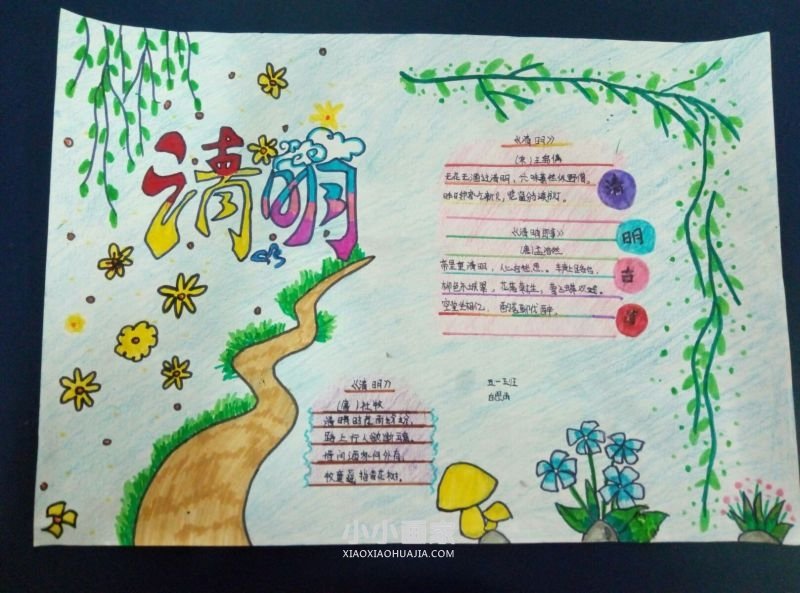 清明
《清明》
(宋)王禹偁
无花无酒过清明，兴味萧然似野僧。
昨日邻家乞新火，晓窗分与读书灯。
清
《清明即事》
明
(唐)孟浩然
帝里重清明，人心自愁思。车声上路合，
古
柳色东城翠。花落草生，莺飞蝶双戏。
空堂坐相忆，酌茗代
诗
《清明》
(唐)杜牧
清明时节雨纷纷，
路上行人欲断魂，
借问酒家何处有，
牧童遥指杏花村。
五一五班
小小画家
XIAOXIAOHUAJIA.COM